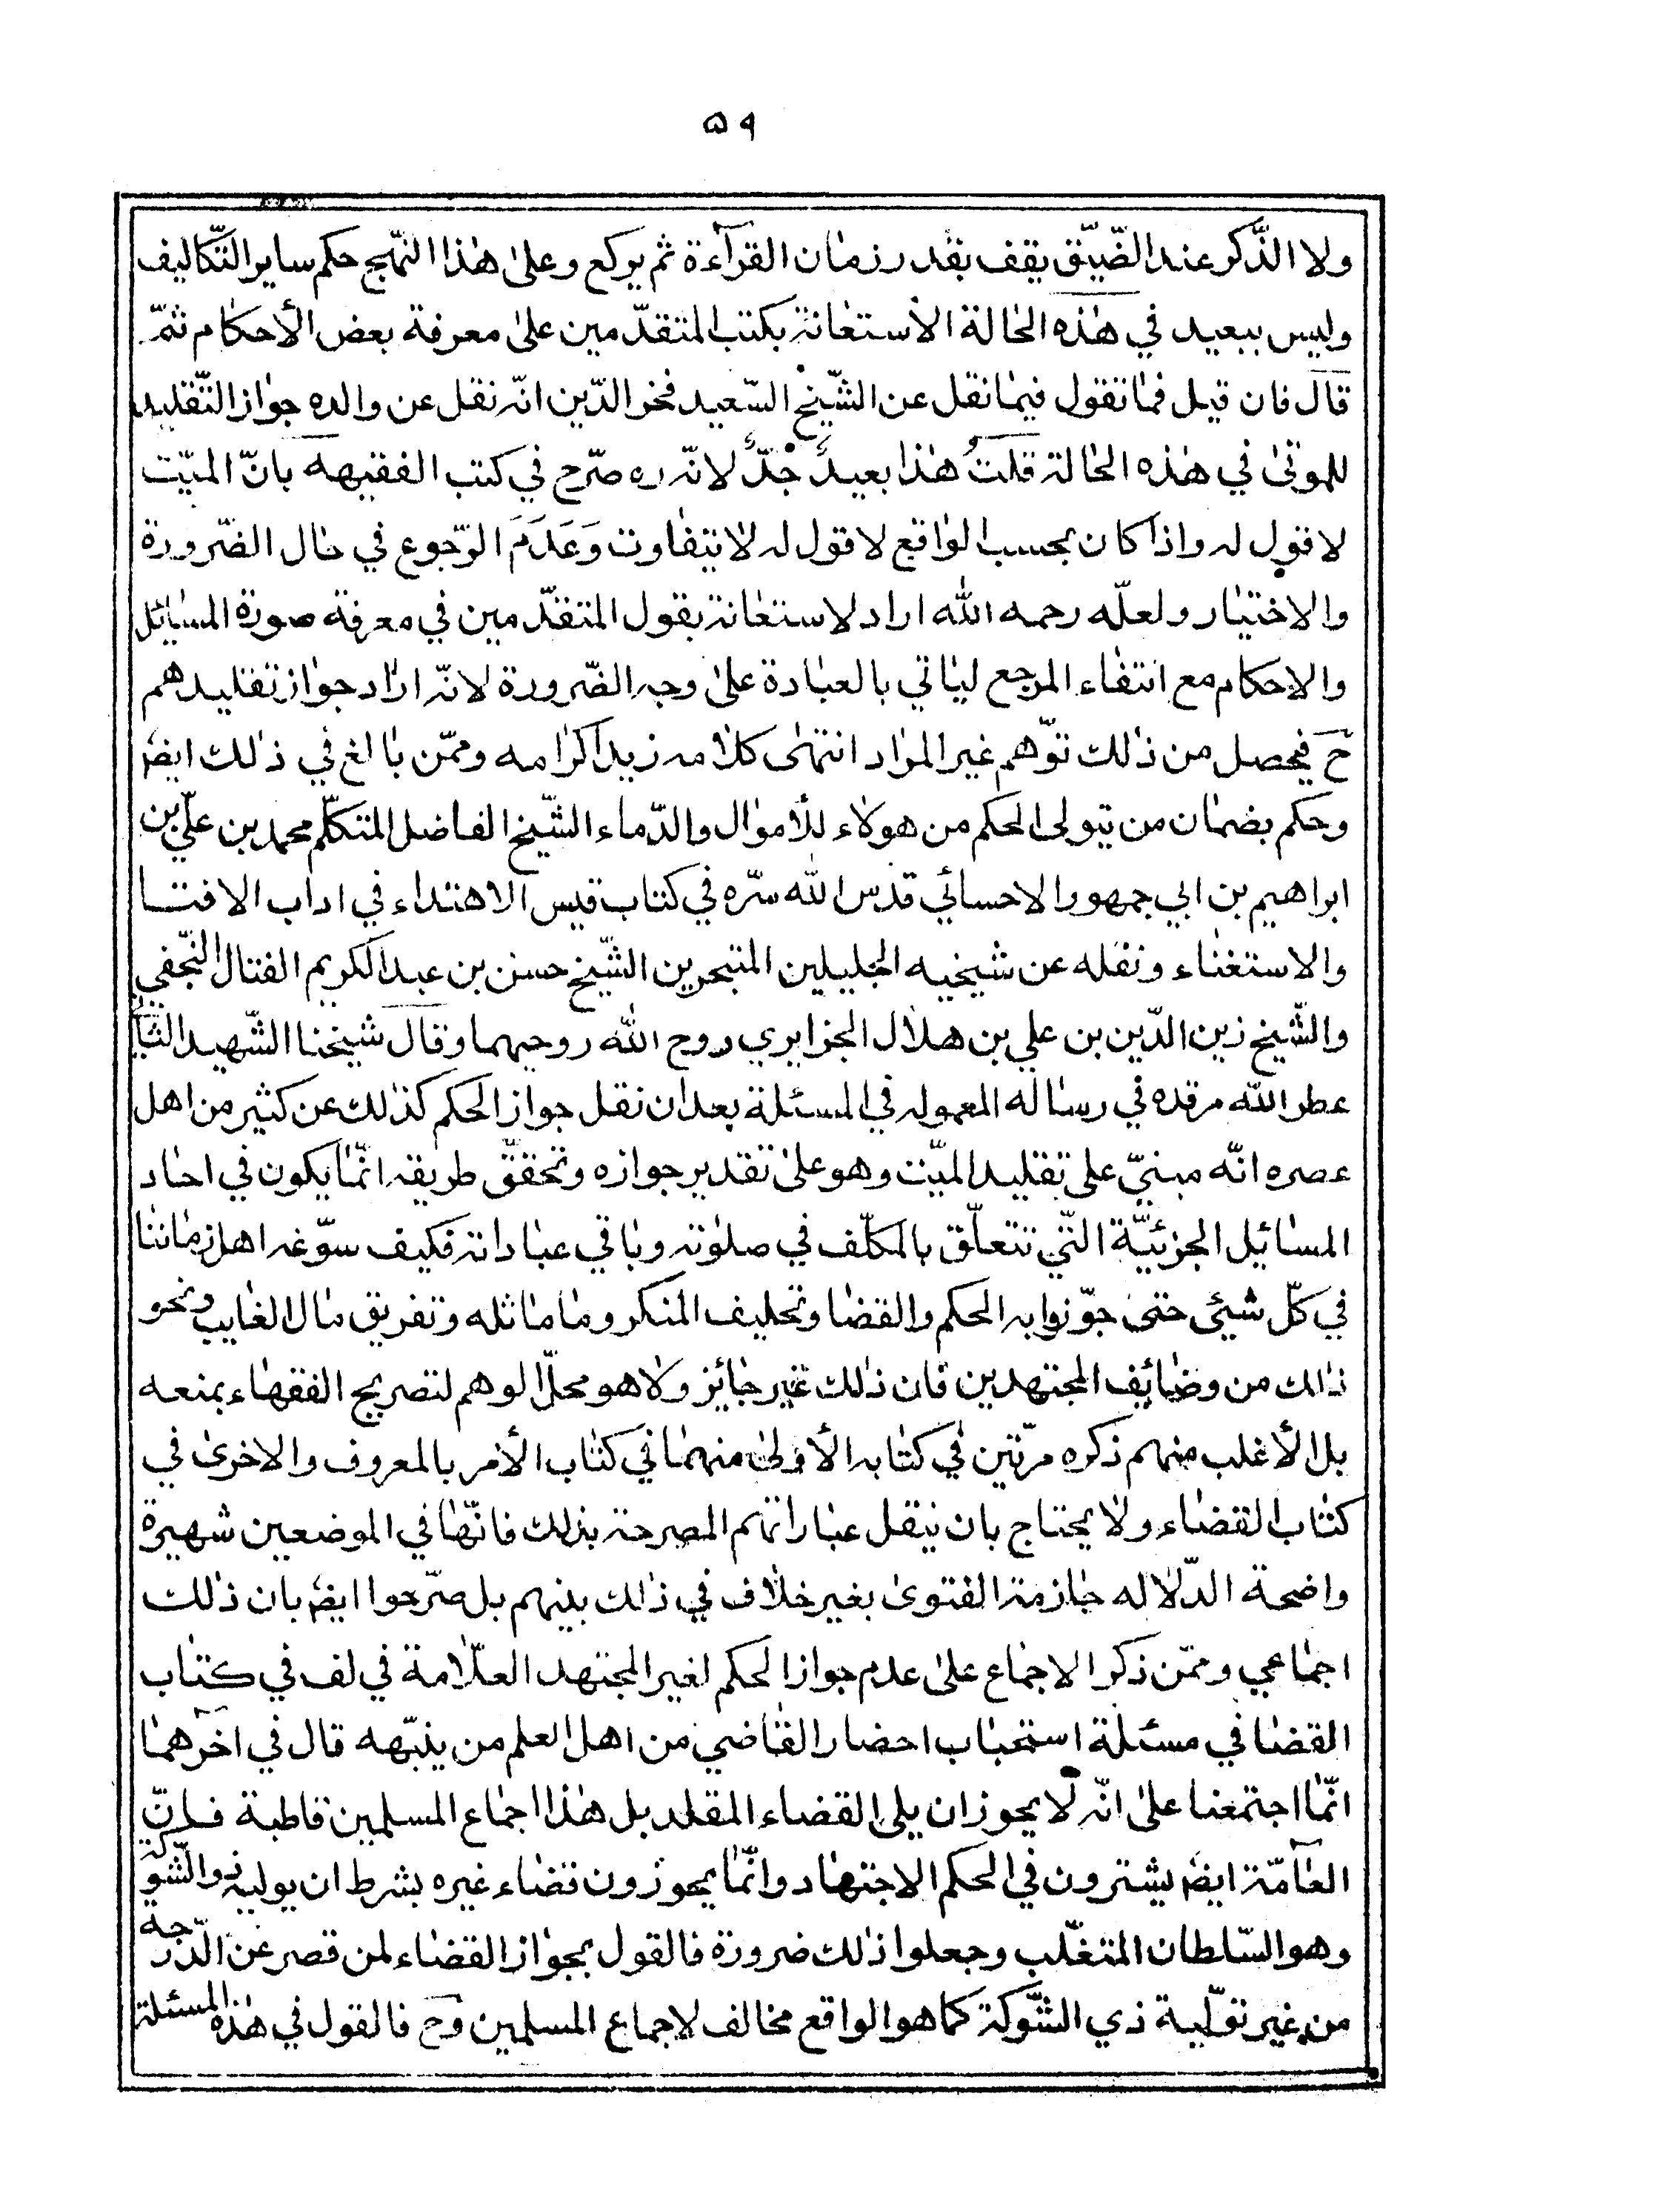 ٥٩
ولا الذّكر عند الضّيّق يقف بقدر زمان القرآءة ثم يركع وعلى هذا النّهج حكم ساير التّكاليف
وليس ببعيد في هذه الحالة الأستعانة بكتب المتقدّمين على معرفة بعض الأحكام ثمّ
قال فان قيل فما تقول فيما نقل عن الشّيخ السّعيد فخر الدّين انّه نقل عن والده جواز التّقليد
للموتى في هذه الحالة قلت هذا بعيد جدّ لانّه ره صرّح في كتب الفقيهه بانّ الميّت
لا قول له واذا كان بحسب الواقع لا قول له لا يتفاوت وَعَدَمَ الرّجوع في حال الضّرورة
والاختيار ولعلّه رحمه الله اراد لاستعانة بقول المتقدّمين في معرفة صورة المسائل
والاحكام مع انتفاء المرجع لياتي بالعبادة على وجه الضّرورة لانّه اراد جواز تقليدهم
ح فيحصل من ذلك توّهم غير المراد انتهى كلامه زيد اكرامه وممّن بالغ في ذلك ايضً
وحكم بضمان من يتولى الحكم من هولاء للأموال والدّماء الشّيخ الفاضل المتكلّم محمد بن عليّ بن
ابراهيم بن ابي جمهور الاحسائي قدّس الله سرّه في كتاب قبس الاهتداء في اداب الافتا
والاستغناء ونقله عن شيخيه الجليلين المتبحرين الشّيخ حسن بن عبد الكريم الفتال النّجفي
والشّيخ زين الدّين بن علي بن هلال الجزايري روح الله روحيهما وقال شيخنا الشّهيد الثّاني
عطر الله مرقده في رساله المعموله في المسئلة بعد ان نقل جواز الحكم كذلك عن كثير من اهل
عصره انّه مبنيّ على تقليد الميّت وهو على تقدير جوازه وتحققّ طريقه انّما يكون في احاد
المسائيل الجزئيّة التّي تتعلّق بالمكلّف في صلوته وباقي عباداته فكيف سوّغه اهل زماننا
في كلّ شيئ حتى جوّزوا به الحكم والقضا وتحليف المنكر وما ماثله وتفريق مال الغايب ونحو
ذلك من وضائف المجتهدين فان ذلك غير جائز ولا هو محلّ الوهم لتصريح الفقهاء بمنعه
بل الأغلب منهم ذكره مرّتين في كتابه الأولى منهما في كتاب الأمر بالمعروف والاخرى في
كتاب القضاء ولا يحتاج بان ينقل عباراتهم المصرحة بذلك فانّها في الموضعين شهيرة
واضحة الدّلاله جازمة الفتوى بغير خلاف في ذلك بينهم بل صرّحوا ايضً بان ذلك
اجماعي وممّن ذكر الاجماع على عدم جواز الحكم لغير المجتهد العلّامة في لف في كتاب
القضا في مسئلة استحباب احضار القاضي من اهل العلم من ينبّهه قال في اخرهما
انّما اجتمعنا على انّه لا يجوز ان يلى القضاء المقلد بل هذا اجماع المسلمين قاطبة فانّ
العامّة ايضً يشترون في الحكم الاجتهاد وانّما يجوزون قضاء غيره بشرط ان يوليه ذو الشّوكة
وهو السّلطان المتغلّب وجعلوا ذلك ضرورة فالقول بجواز القضاء لمن قصر عن الدّرجه
من غير تولّية ذي الشّوكة كما هو الواقع مخالف لاجماع المسلمين وح فالقول في هذه المسئلة